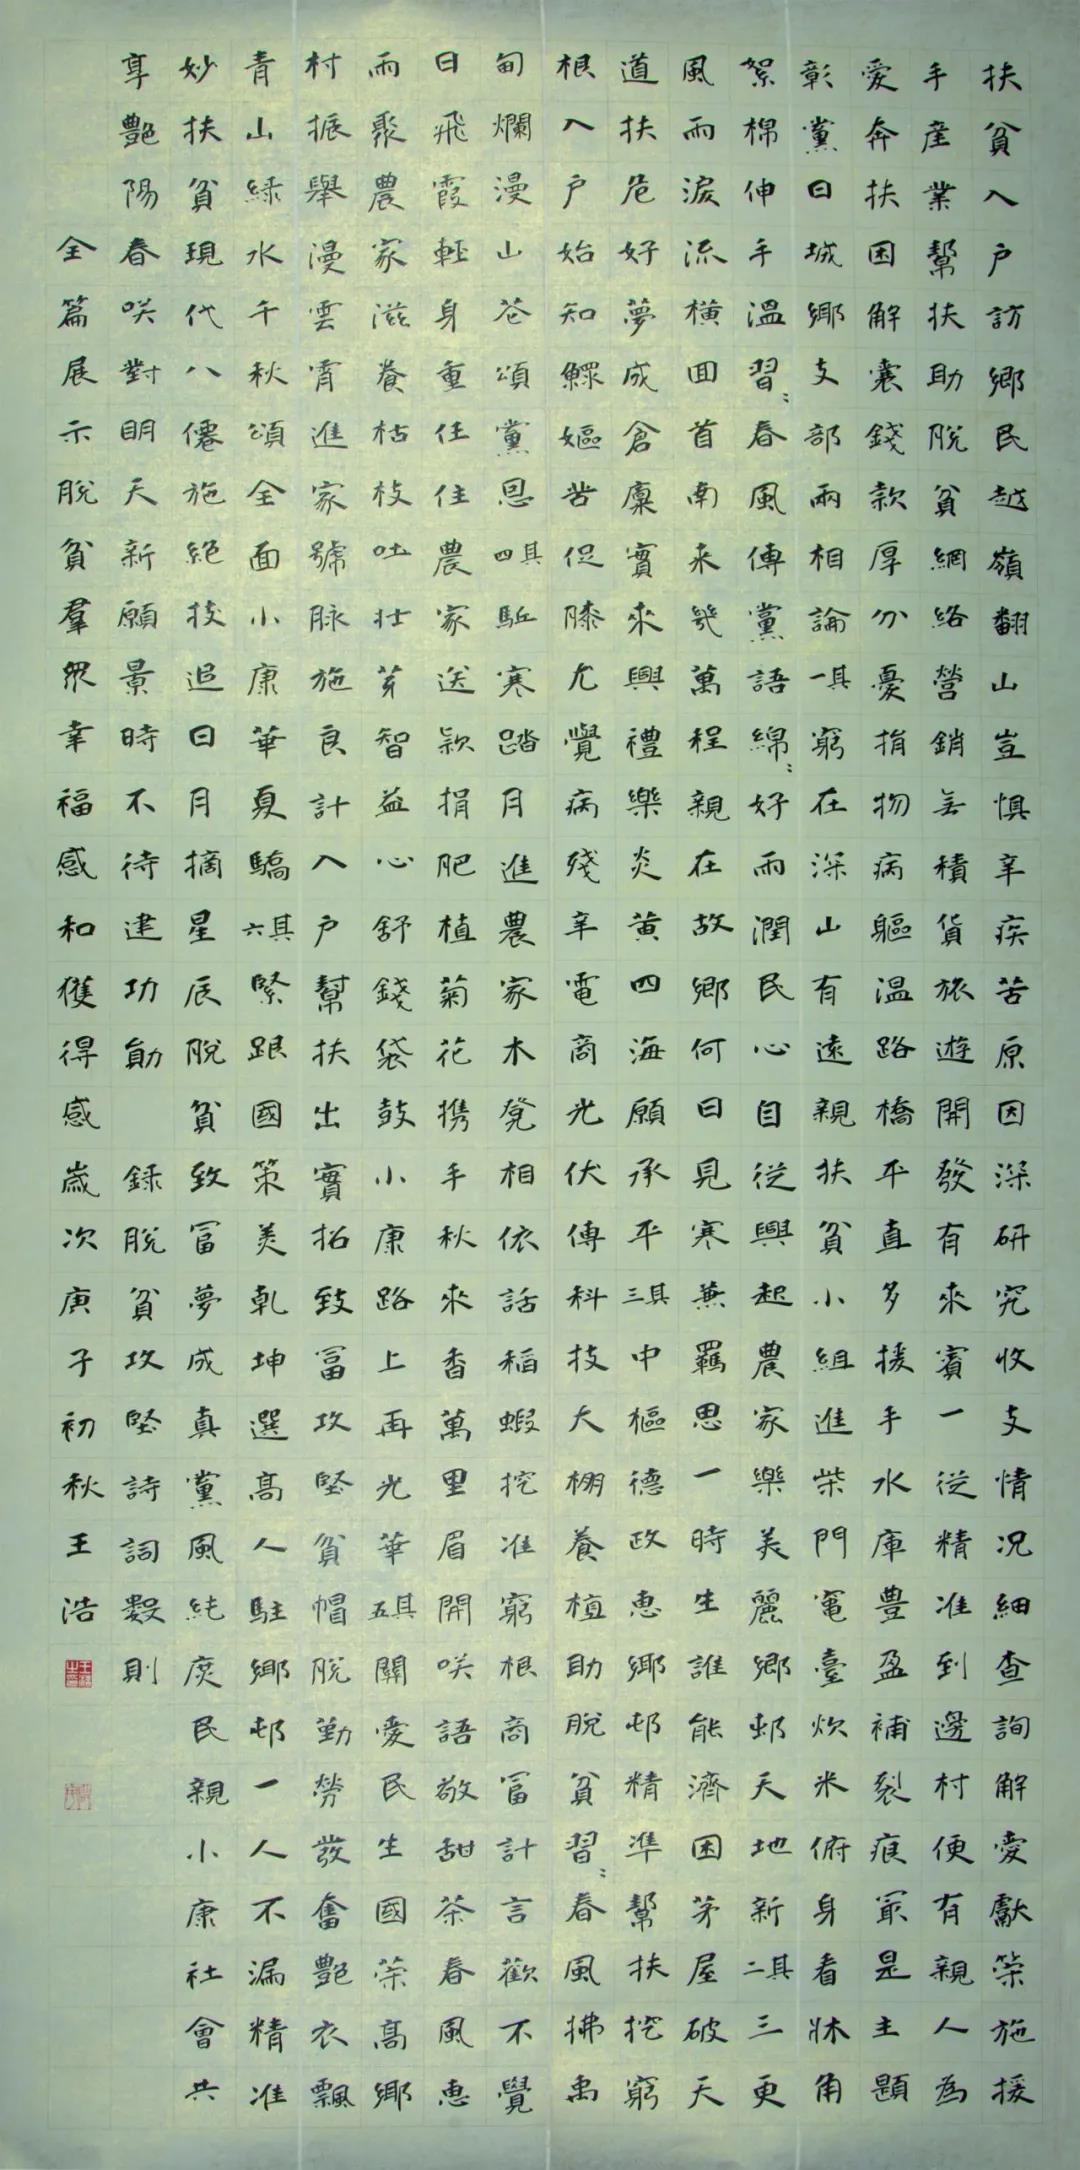 扶貧入户訪鄉民越嶺翻山豈惧辛疾苦原因深研究收支情况細查詢解愛獻策施援
手產業幫扶助脫貧網絡營銷無積貨旅遊開發有來賓一從精准到邊村便有親人為
愛奔扶困解囊錢款厚分憂捐物病軀温路橋平直多援手水庫豐盈補裂痕最是主題
彰黨日城鄉支部兩相論其一窮在深山有遠親扶貧小組進柴門竃臺炊米俯身看牀角
絮棉伸手溫習々春風傳黨語綿々好雨潤民心自從興起農家樂美麗鄉邨天地新其二三更
風雨淚流橫回首南来幾萬程親在故鄉何日見寒蒹羈思一時生誰能濟困茅屋破天
道扶危好夢成倉廩實來興禮樂炎黄四海願承平其三中樞德政惠鄉邨精準幫扶挖窮
根入户始知鰥嫗苦促膝尤覺病殘辛電商光伏傳科技大棚養植助脫貧習々春風拂禹
甸爛漫山花頌黨恩其四駈寒踏月進農家木凳相依話稻蝦挖准窮根商富計言歡不覺
日飛霞輕身重任住農家送款捐肥植菊花携手秋來香萬里眉開咲語敬甜茶春風惠
雨聚農家滋養枯枝吐壯芽智益心舒錢袋鼓小康路上再光華其五關愛民生國榮高鄉
村振舉漫雲霄進家號脉施良計入户幫扶出實拓致富攻堅貧帽脫勤勞發奮艷衣飄
青山緑水千秋頌全面小康華夏驕其六緊跟國策美乾坤選高人駐鄉邨一人不漏精准
妙扶貧現代八僊施絕技追日月摘星辰脫貧致富夢成真黨風純庶民親小康社會共
享艷陽春咲對明天新願景時不待建功勛 録脫貧攻堅詩詞數則
全篇展示脫貧羣眾幸福感和獲得感歲次庚子初秋王浩